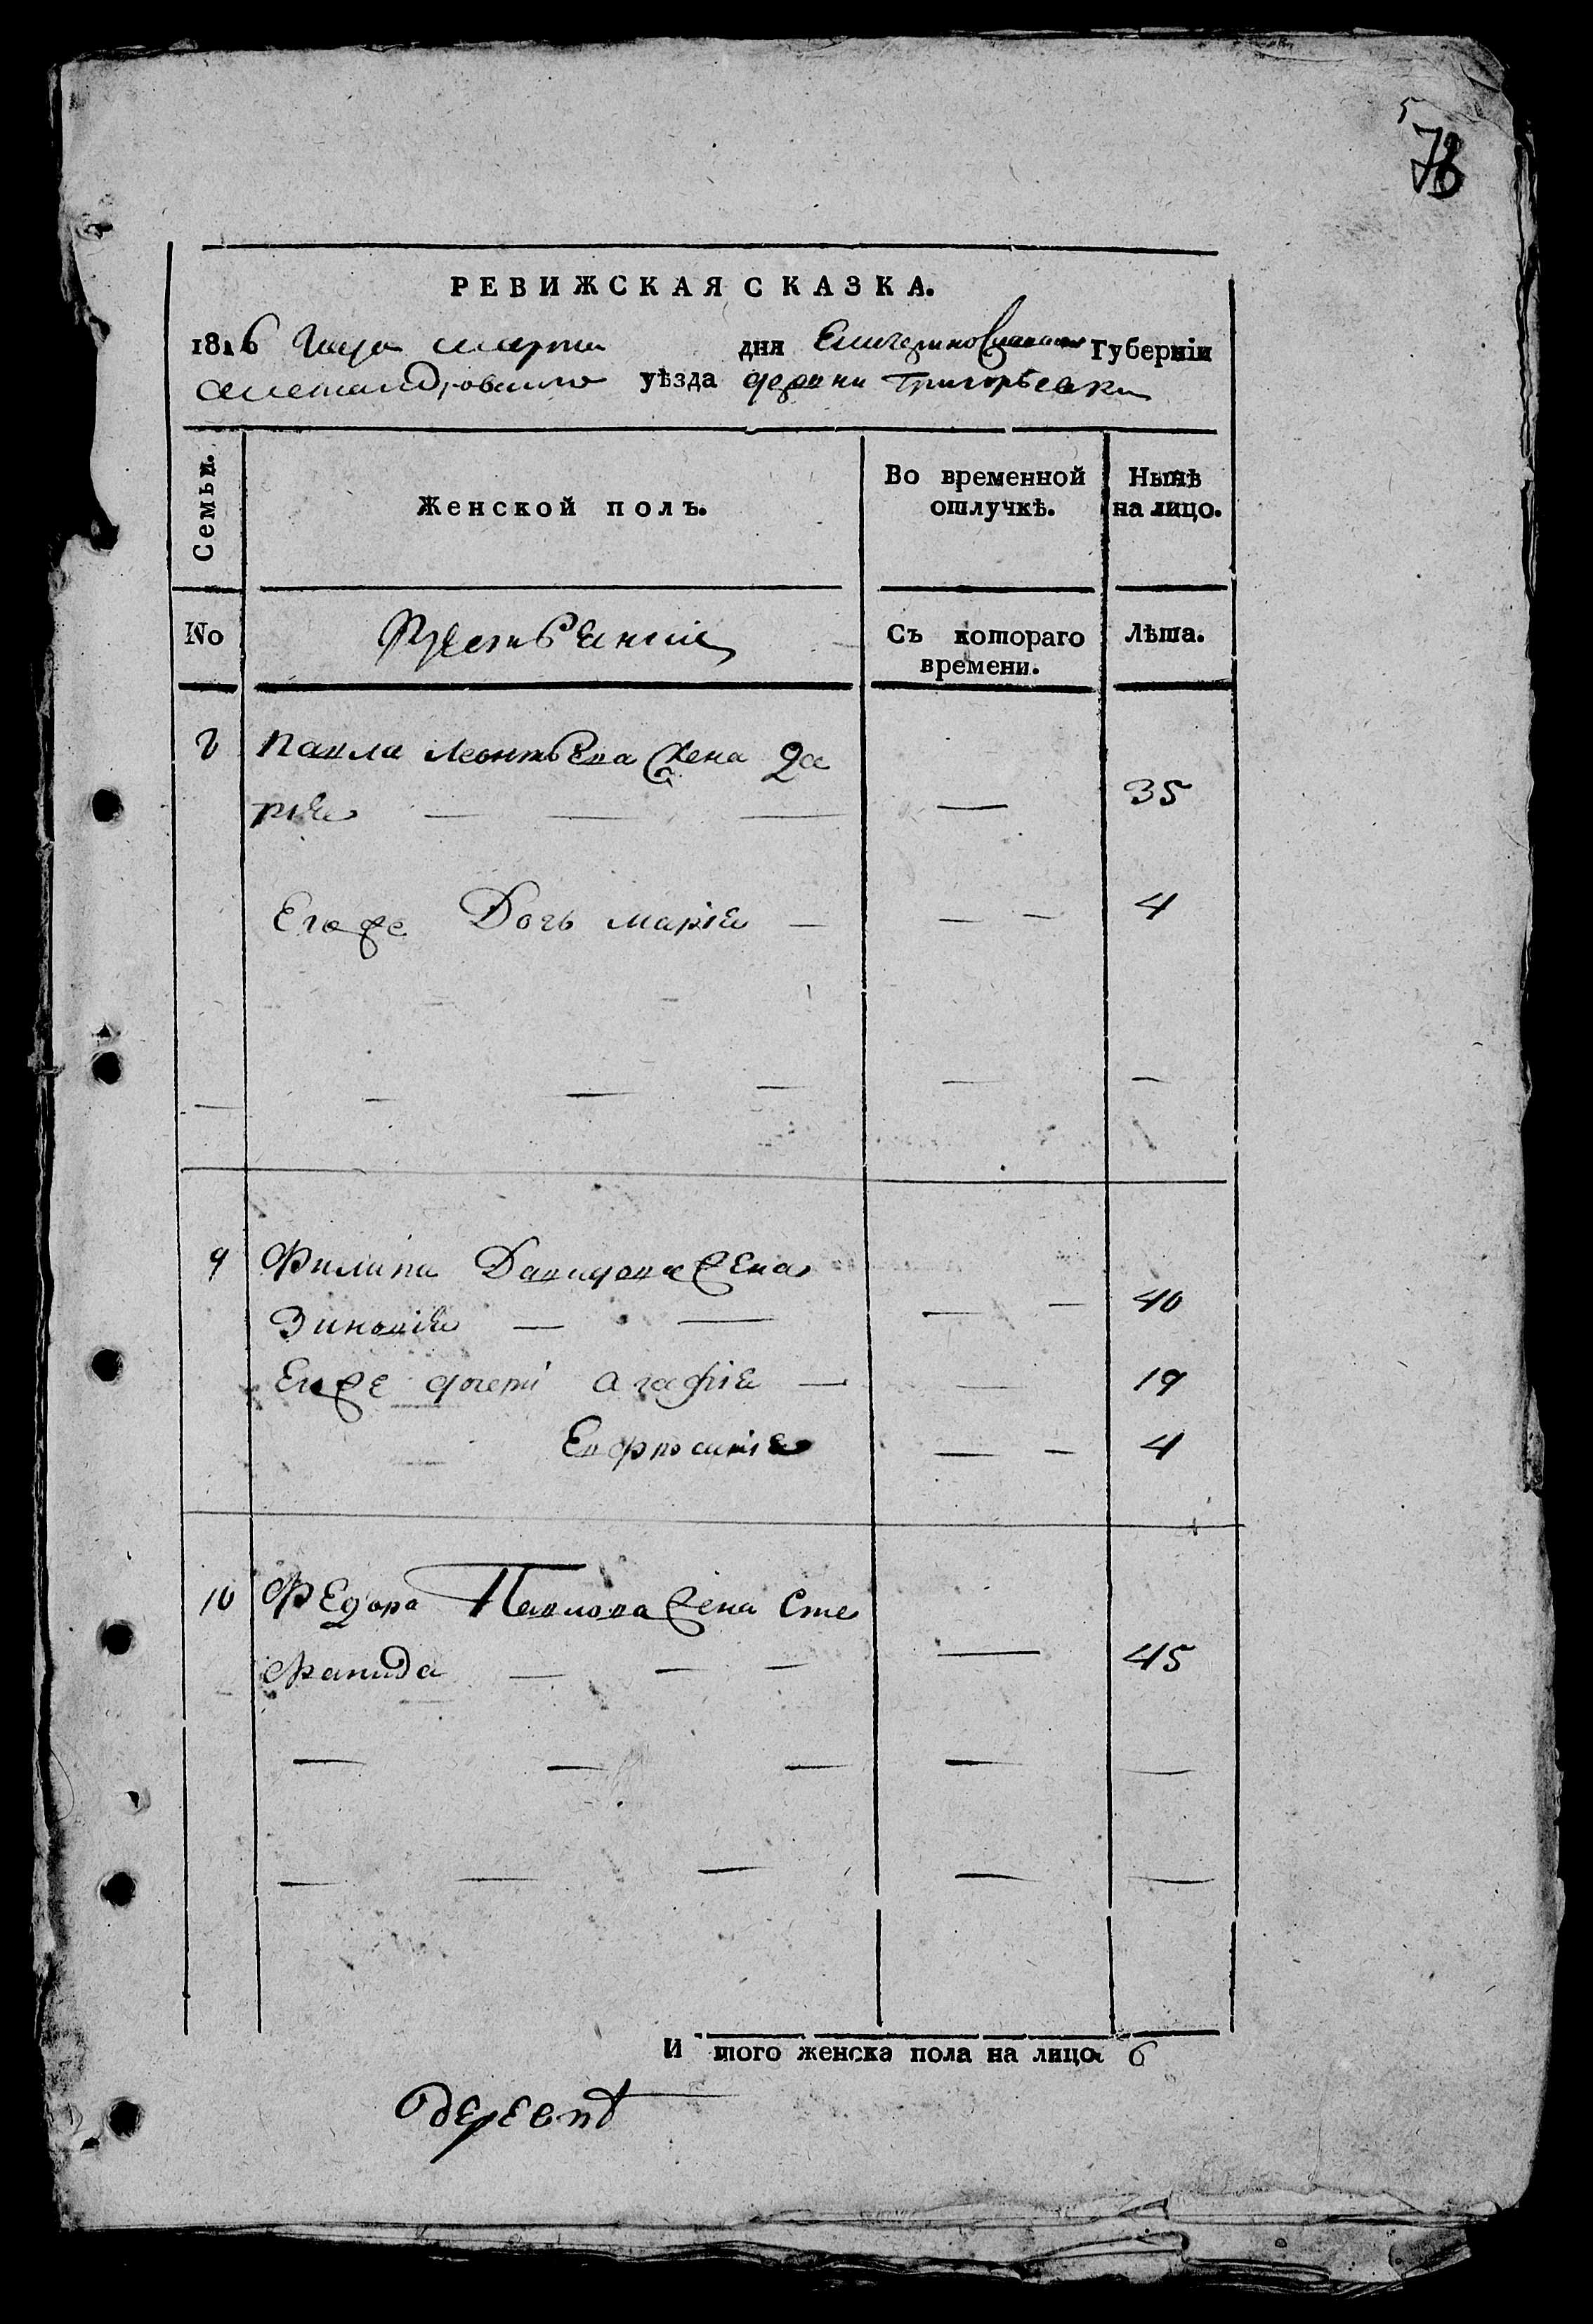 5
78
РЕВИЖСКАЯ СКАЗКА.
1816 Года марта дня Екатеринославской Губерніи
Александровского уѣзда деревни Григорьевки
Семьи.
Женской полъ.
Во временной отлучкѣ.
Нынѣ на лицо.
No
Крестьянки
Съ котораго времени.
Лѣта.
8 Павла Леонтьева жена Да
рія — — — — 35
Егоже Дочь марія — — — 4
9 Филипа Давидова жена
Зиновія — — — — 40
Егоже дочери Агафія — — 19
Евфросинія — — 4
10 Федора Павлова жена Сте
фанида — — — — 45
И того женска пола на лицо 6
деревнѣ